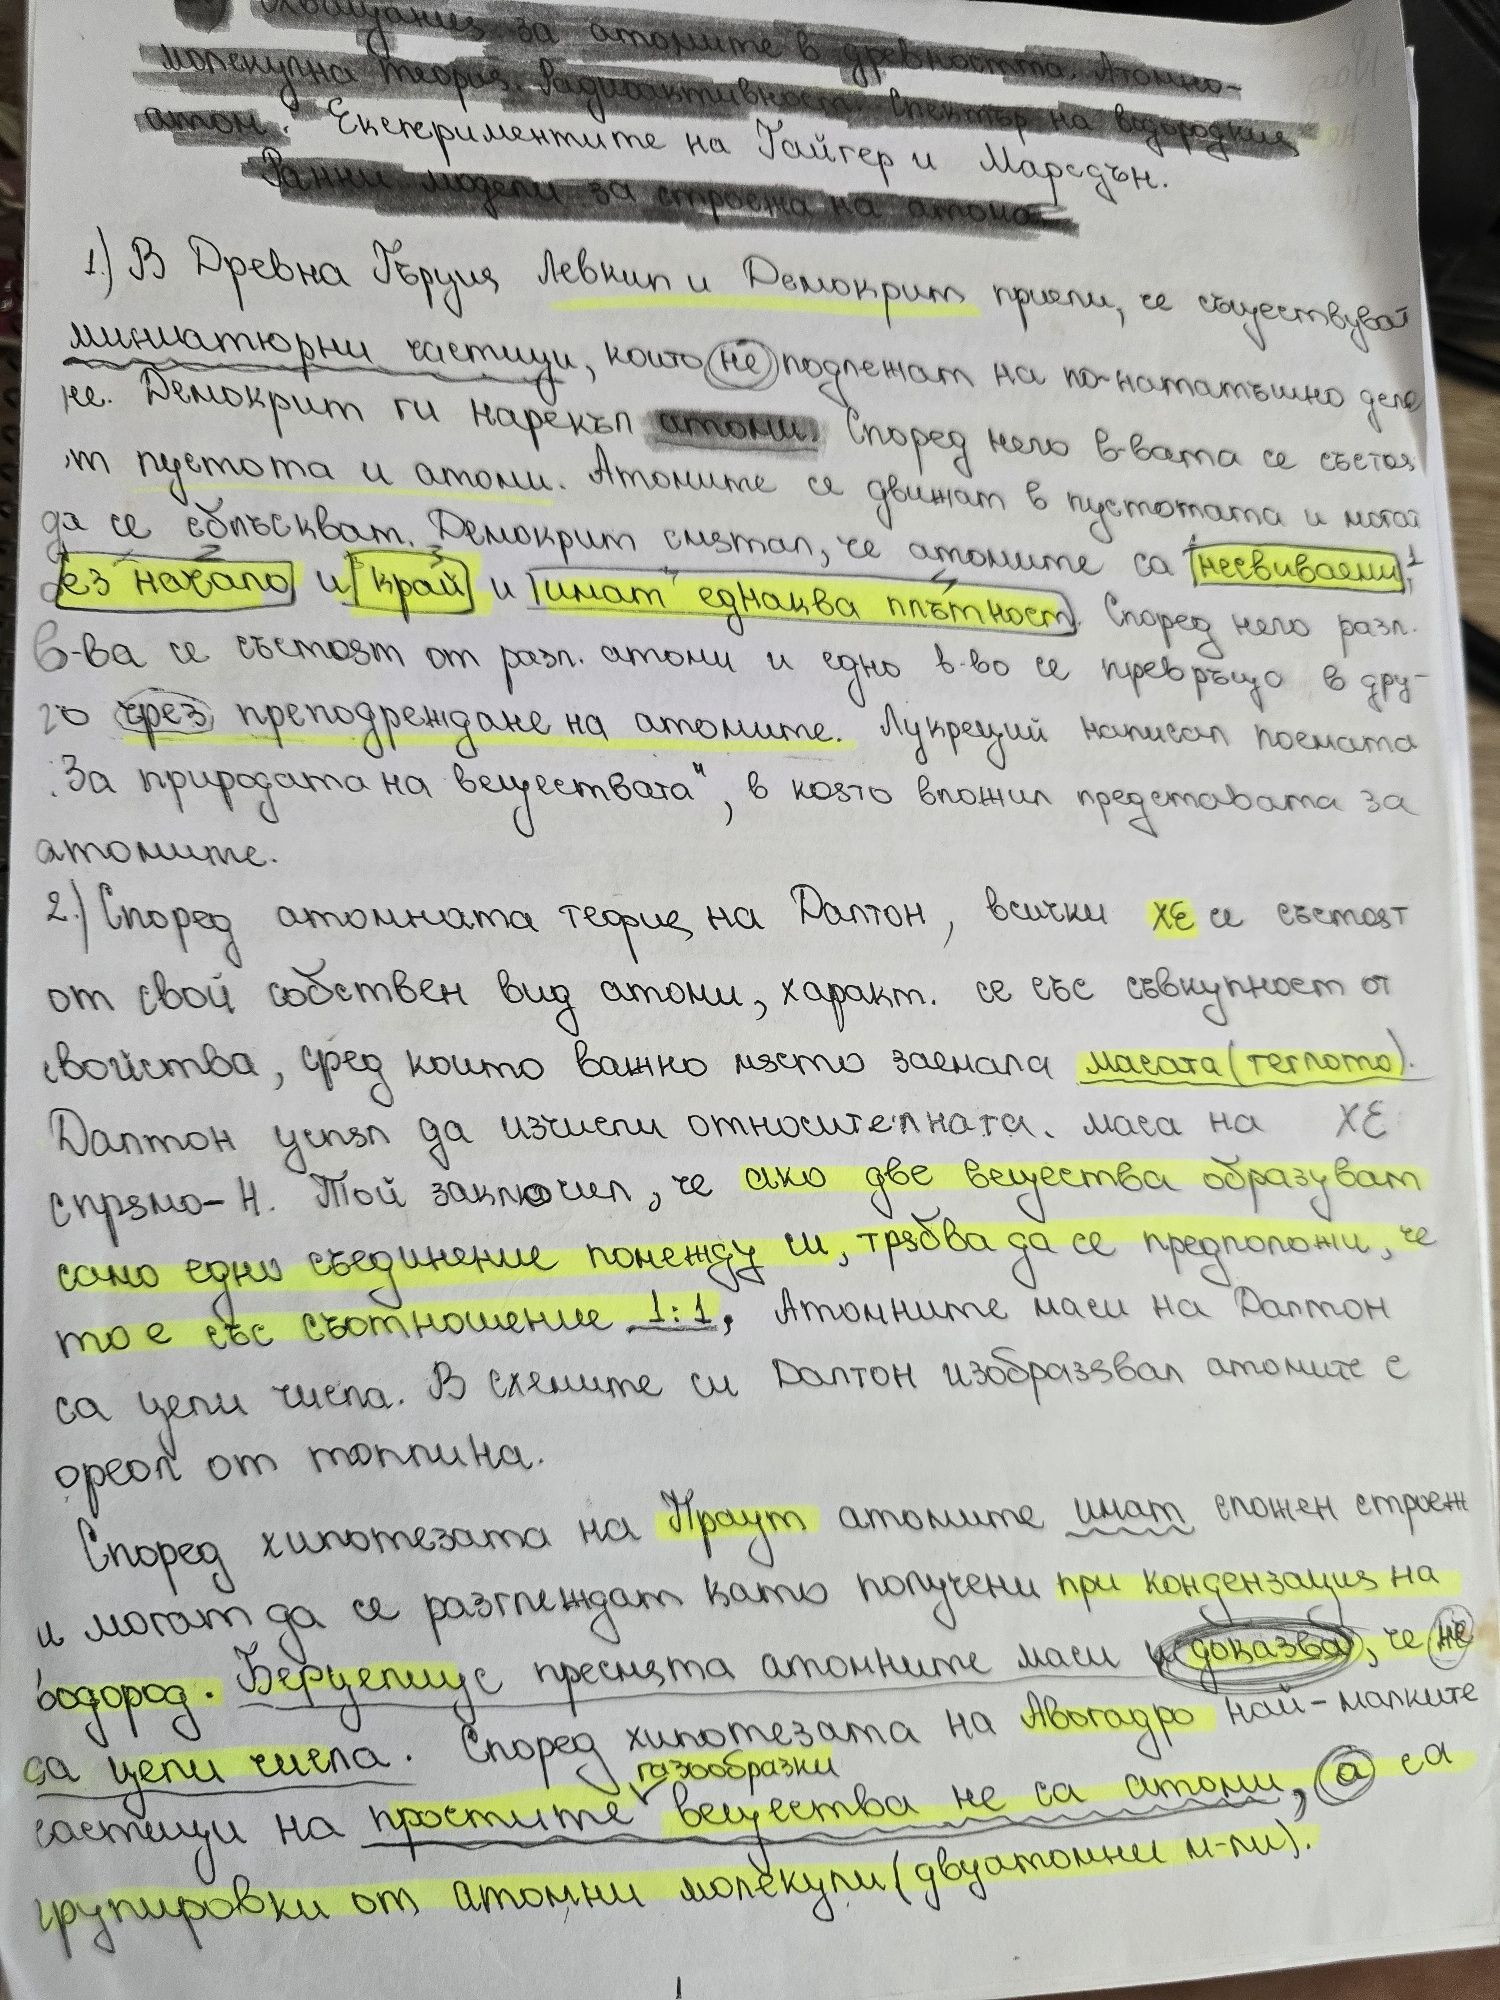 схващания за атомите в древността. Атомно-
молекулна теория. Радиоактивност. Спектър на водородния
атом. Експериментите на Гайгер и Марсдън.
Ранни модели за строежа на атома
1.) В Древна Гърция Левкип и Демокрит приели, че съществуват
миниатюрни частици, които не подлежат на по-нататъшно деле
не. Демокрит ги нарекъл атоми. Според него в-вата се състоя
т пустота и атоми. Атомите се движат в пустотата и могат
да се сблъскват. Демокрит смятал, че атомите са несвиваеми,
без начало и край и имат еднаква плътност. Според него разл.
в-ва се състоят от разл. атоми и едно в-во се превръща в дру-
го чрез преподреждане на атомите. Лукреций написал поемата
"За природата на веществата", в която вложил представата за
атомите.
2.) Според атомната теория на Далтон, всички ХЕ се състоят
от свой собствен вид атоми, характ. се със съвкупност от
свойства, сред които важно място заемала масата (теглото).
Далтон успял да изчисли относителната маса на ХЕ
спрямо - H. Той заключил, че ако две вещества образуват
само едно съединение помежду си, трябва да се предположи, че
то е със съотношение 1:1. Атомните маси на Далтон
са цели числа. В схемите си Далтон изобразявал атомите с
ореол от топлина.
Според хипотезата на Праут атомите имат сложен строеж
и могат да се разглеждат като получени при кондензация на
водород. Берцелиус преснята атомните маси и доказва, че не
са цели числа. Според хипотезата на Авогадро най-малките
газообразни
частици на простите вещества не са атоми, а са
групировки от атомни молекули (двуатомни м-ли).
1